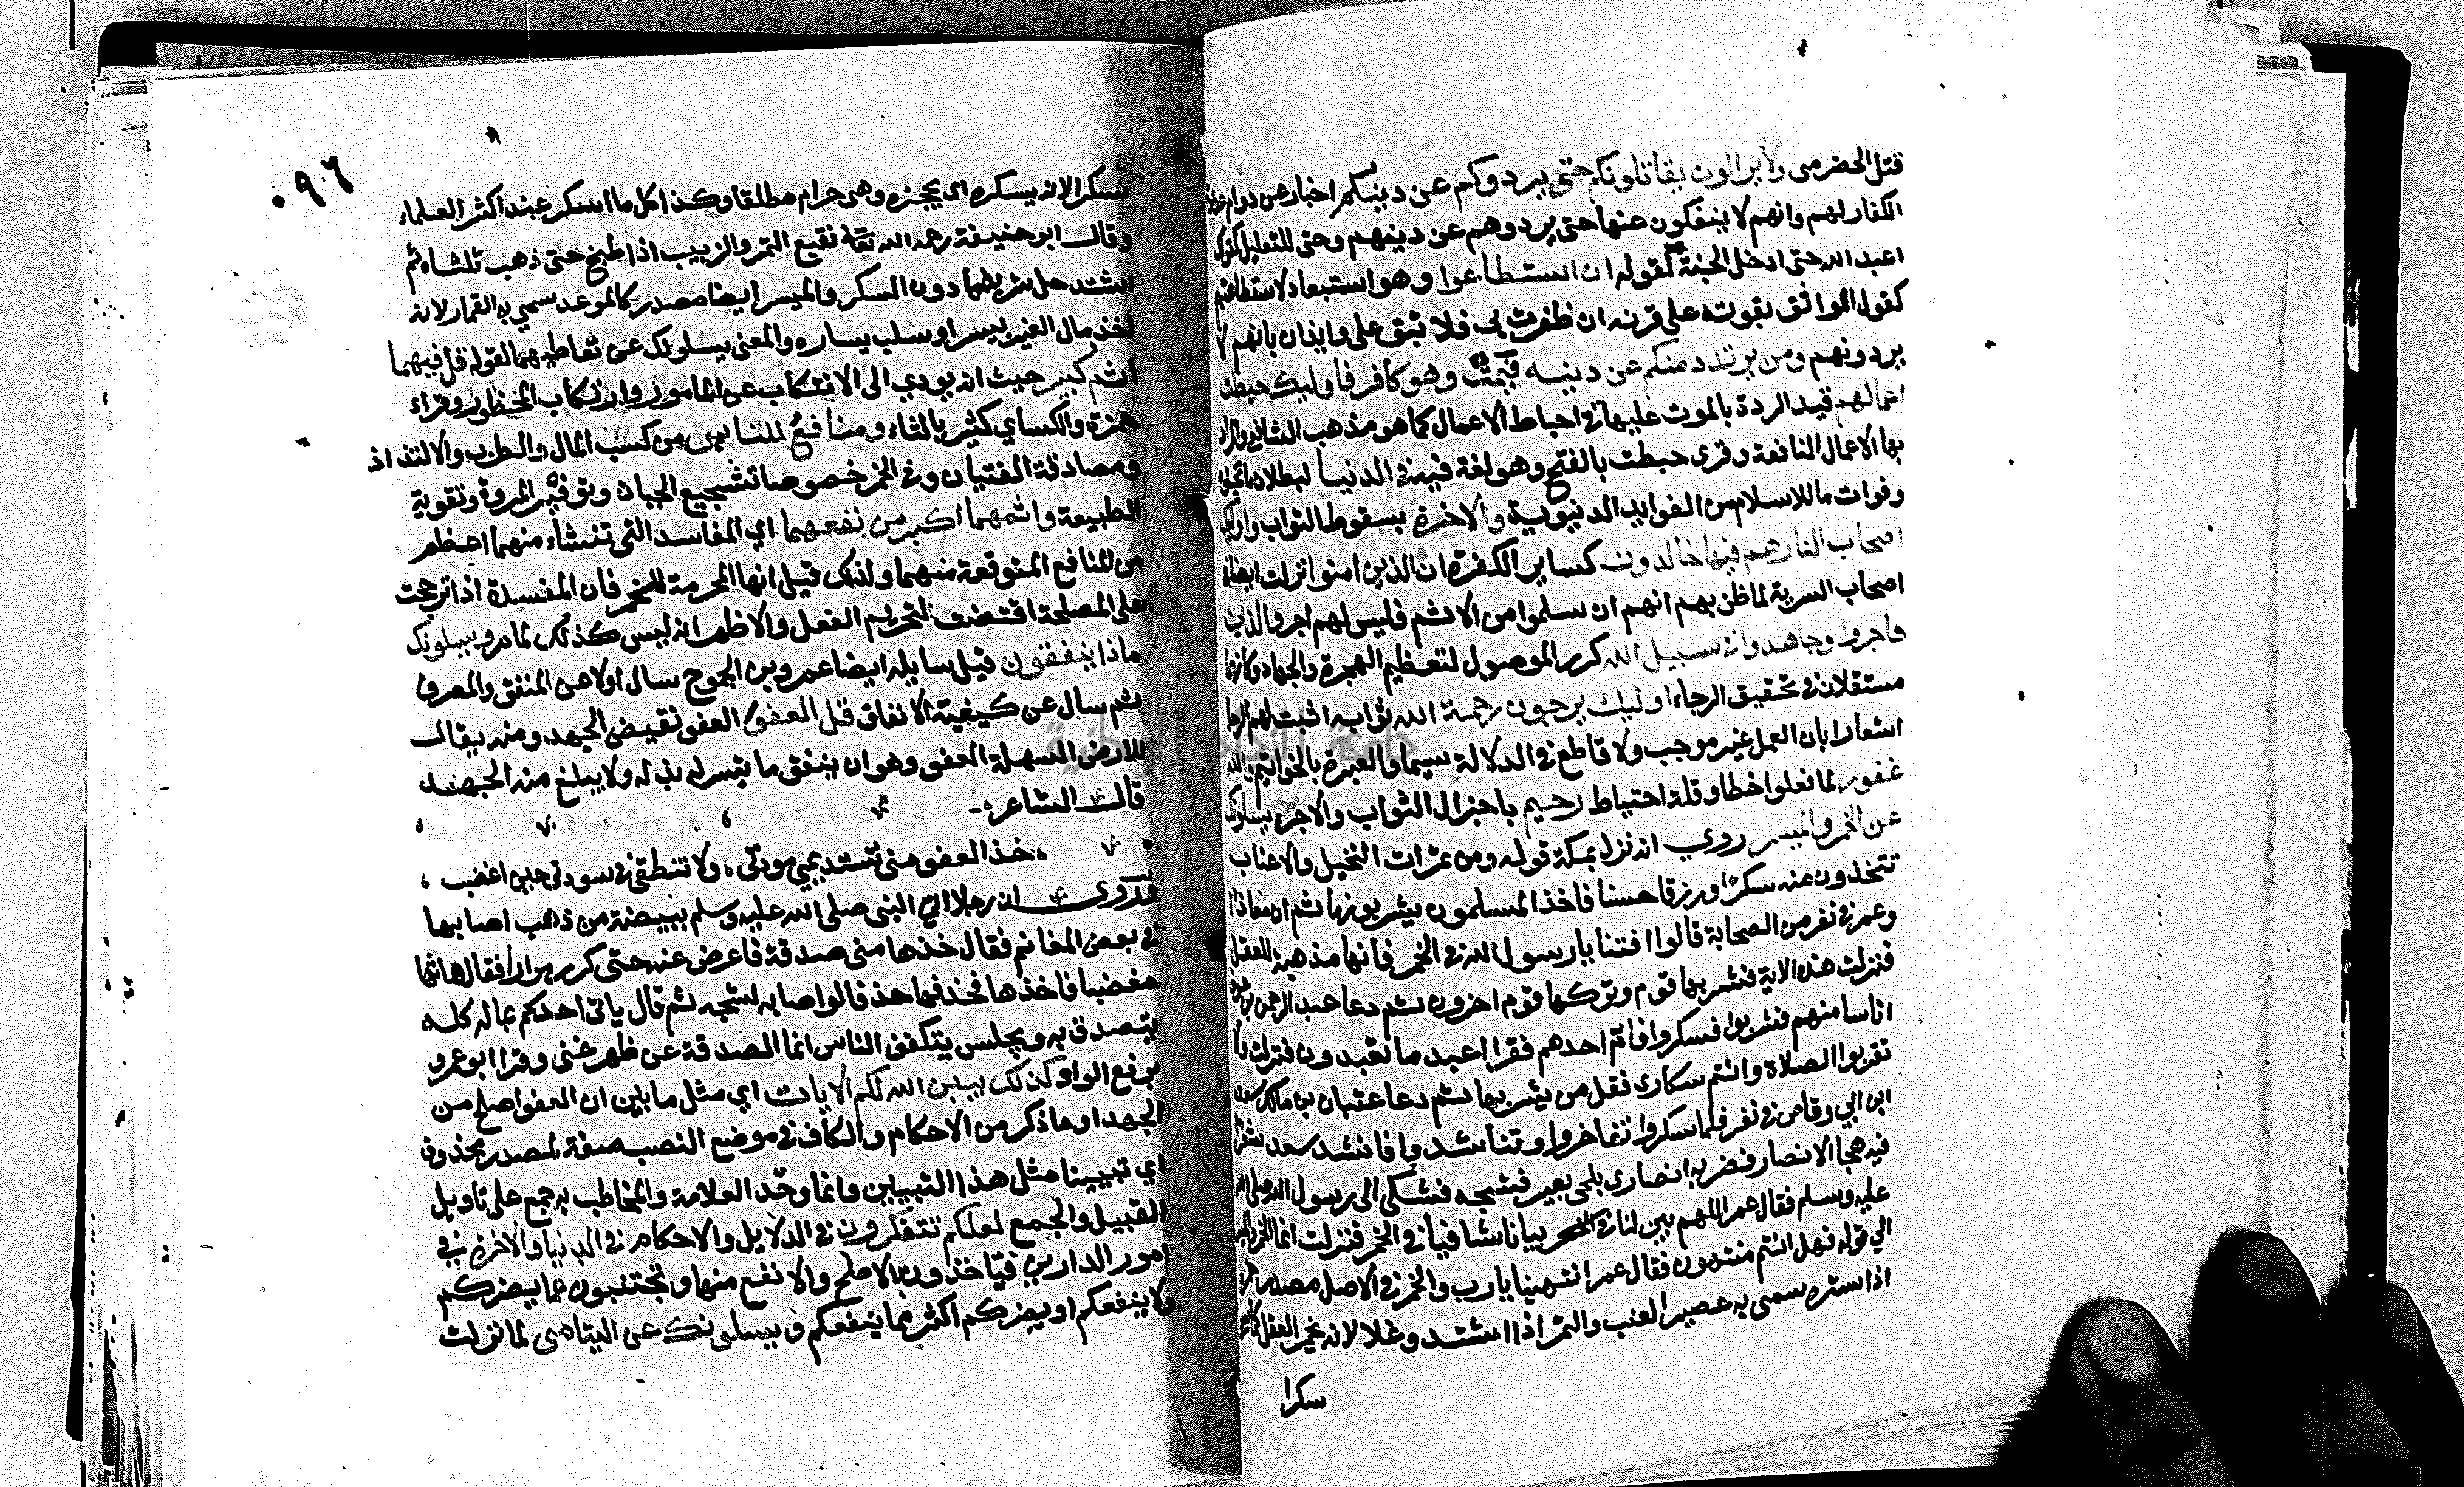 قتل الحضرمى ولا يزالون يقاتلونكم حتى يردوكم عن دينكم اخبار عن دوام عداوة
الكفار لهم وانهم لا ينفكون عنها حتى يردوهم عن دينهم وحتى للتعليل كقولك
اعبد الله حتى ادخل الجنة لقوله ان استطاعوا وهو استبعاد لاستطاعتهم
كقول الواثق بقوته على قرنه ان ظفرت بى فلا تبق على وايذان بانهم لا
يردونهم ومن يرتدد منكم عن دينه فيمت وهو كافر فاوليك حبطت
اعمالهم قيد الردة بالموت عليها فى احباط الاعمال كما هو مذهب الشافعى والمراد
بها الاعمال النافعة وقرى حبطت بالفتح وهو لغة فيه فى الدنيا لبطلان ما تخيلوه
وفوات ما للاسلام من الفوايد الدنيوية والاخرة بسقوط الثواب واوليك
اصحاب النار هم فيها خالدون كساير الكفرة ان الذين امنوا نزلت ايضا فى
اصحاب السرية لما ظن بهم انهم ان سلموا من الاثم فليس لهم اجر والذين
هاجروا وجاهدوا فى سبيل الله كرر الموصول لتعظيم الهجرة والجهاد وكانهما
مستقلان فى تحقيق الرجاء اوليك يرجون رحمة الله ثوابه اثبت لهم الرجا
اشعارا بان العمل غير موجب ولا قاطع فى الدلالة سيما والعبرة بالخواتيم والله
غفور لما فعلوا خطا وقلة احتياط رحيم باجزال الثواب والاجر يسلونك
عن الخمر والميسر روي انه نزل بمكة قوله ومن ثمرات النخيل والاعناب
تتخذون منه سكرا ورزقا حسنا فاخذ المسلمون يشربونها ثم ان معاذا
وعمر فى نفر من الصحابة قالوا افتنا يا رسول الله فى الخمر فانها مذهبة للعقل
فنزلت هذه الاية فشربها قوم وتركها قوم اخرون ثم دعا عبد الرحمن بن عوف
اناسا منهم فشربوا فسكروا فام احدهم فقرا اعبد ما تعبدون فنزلت لا
تقربوا الصلاة وانتم سكارى فقل من يشربها ثم دعا عتبان بن مالك سعد
ابن ابي وقاص فى نفر فلما سكروا تفاخروا وتناشدوا فانشد سعد شعرا
فيه هجا الانصار فضربه انصارى بلحى بعير فشجه فشكى الى رسول الله صلى الله
عليه وسلم فقال عمر اللهم بين لنا فى الخمر بيانا شافيا فى الخمر فنزلت انما الخمر والميسر
الي قوله فهل انتم منتهون فقال عمر انتهينا يا رب والخمر فى الاصل مصدر خمره
اذا ستره سمى به عصير العنب والتمر اذا اشتد وغلا لانه يخمر العقل كما سمى
سكرا
٩٦
سكرا لانه يسكره اى يحجزه وهى حرام مطلقا وكذا كل ما اسكر عند اكثر العلماء
وقال ابو حنيفة رحمه الله نقيع التمر والزبيب اذا طبخ حتى ذهب ثلثاه ثم
اشتد حل شربهما دون السكر والميسر ايضا مصدر كالموعد سمي به القمار لانه
اخذ مال الغير بيسر او سلب يساره والمعنى يسلونك عن تعاطيهما لقوله قل فيهما
اثم كبير حيث انه يودي الى الانتكاب عن المامور وارتكاب المحظور وقراء
حمزة والكساي كثير بالثاء ومنافع للناس من كسب المال والطرب والالتذاذ
ومصادقة الفتيان وفى الخمر خصوصا تشجيع الجبان وتوفير المروة وتقوية
الطبيعة واثمهما اكبر من نفعهما اي المفاسد التى تنشاء منهما اعظم
من المنافع المتوقعة منهما ولذلك قيل انها المحرمة للخمر فان المفسدة اذا ترجحت
على المصلحة اقتضت لتحريم الفعل والاظهر انه ليس كذلك لما مر ويسلونك
ماذا ينفقون قيل سايله ايضا عمرو بن الجموح سال اولا عن المنفق والمصرف
ثم سال عن كيفية الانفاق قل العفو العفو نقيض الجهد ومنه يقال
للارض السهلة العفو وهو ان ينفق ما تيسر له بذله ولا يبلغ منه الجهد
قال الشاعر
خذ العفو منى تستديمي مودتى ، ولا تنطقى فى سورتى حين اغضب ،
وروى ان رجلا اتى النبى صلى الله عليه وسلم ببيضة من ذهب اصابها
فى بعض المغانم فقال خذها منى صدقة فاعرض عنه حتى كرر مرارا فقال هاتها
مغضبا فاخذها فخذفها حذفا لو اصابه لشجه ثم قال ياتى احدكم بماله كله
يتصدق به ويجلس يتكفف الناس انما الصدقة عن ظهر غنى وقرا ابو عمرو
برفع الواو كذلك يبين الله لكم الايات اي مثل ما بين ان العفو اصلح من
الجهد او ما ذكر من الاحكام والكاف فى موضع النصب صفة لمصدر محذوف
اي تبيينا مثل هذا التبيين وانما وحد العلامة والمخاطب به جمع على تاويل
القبيل والجمع لعلكم تتفكرون فى الدلايل والاحكام فى الدنيا والاخرة فى
امور الدارين فتاخذون بالاصلح والانفع منها وتجتنبون عما يضركم
ولا ينفعكم او يضركم اكثر مما ينفعكم ويسلونك عن اليتامى لما نزلت